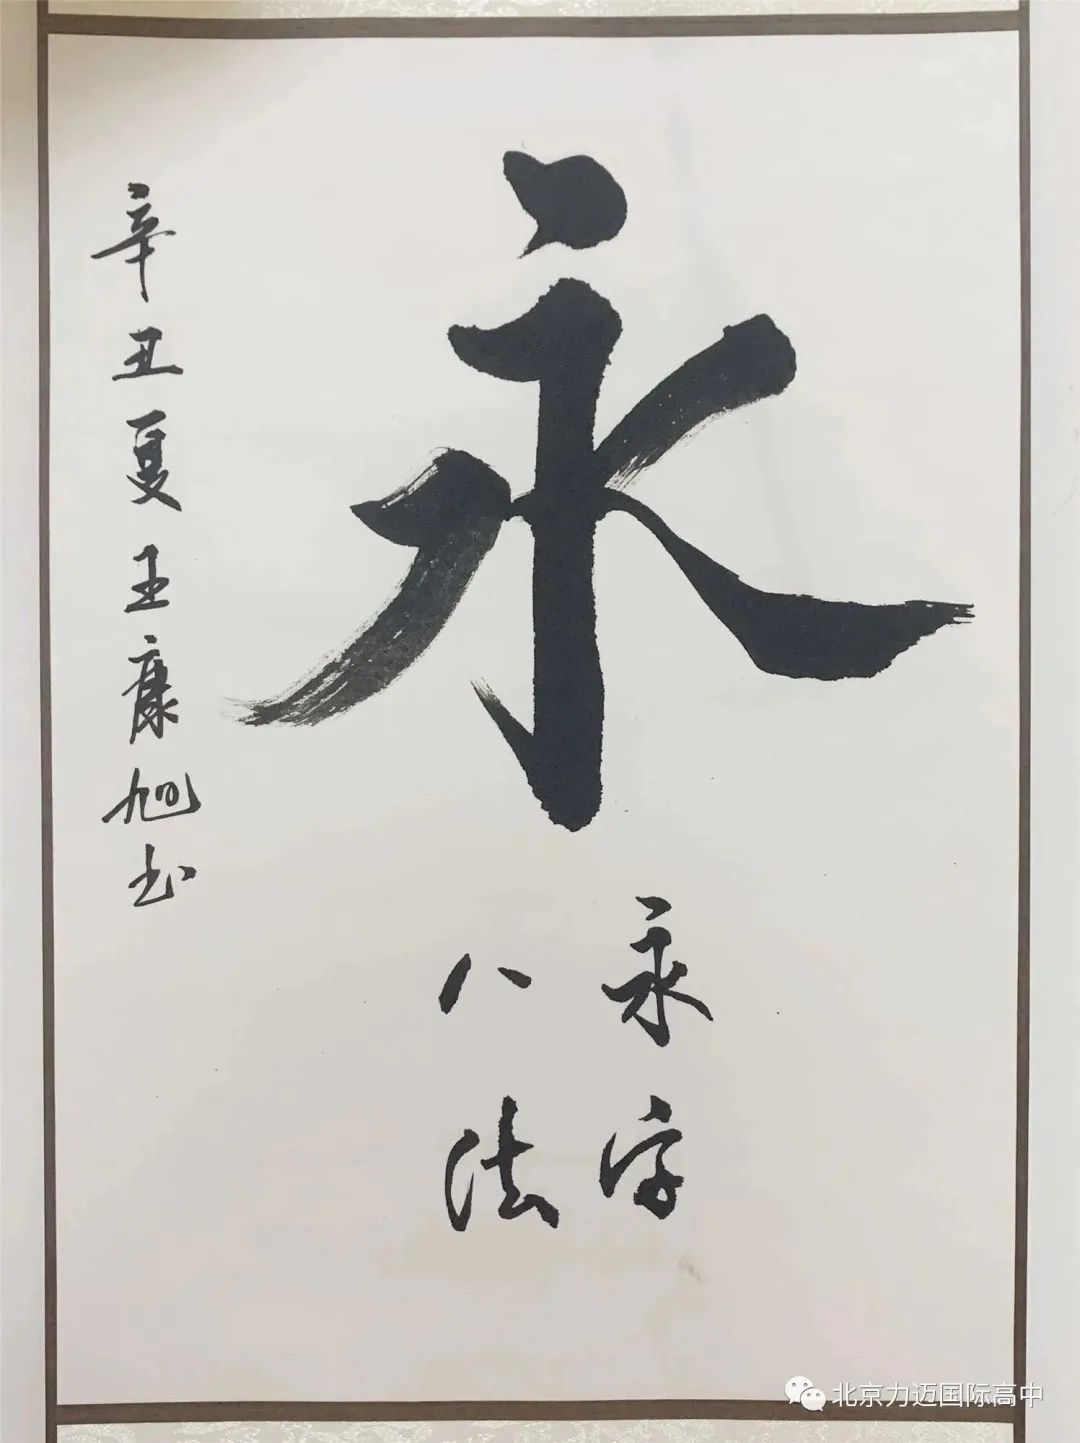 永
永字
八法
辛丑夏王康旭书
北京力迈国际高中